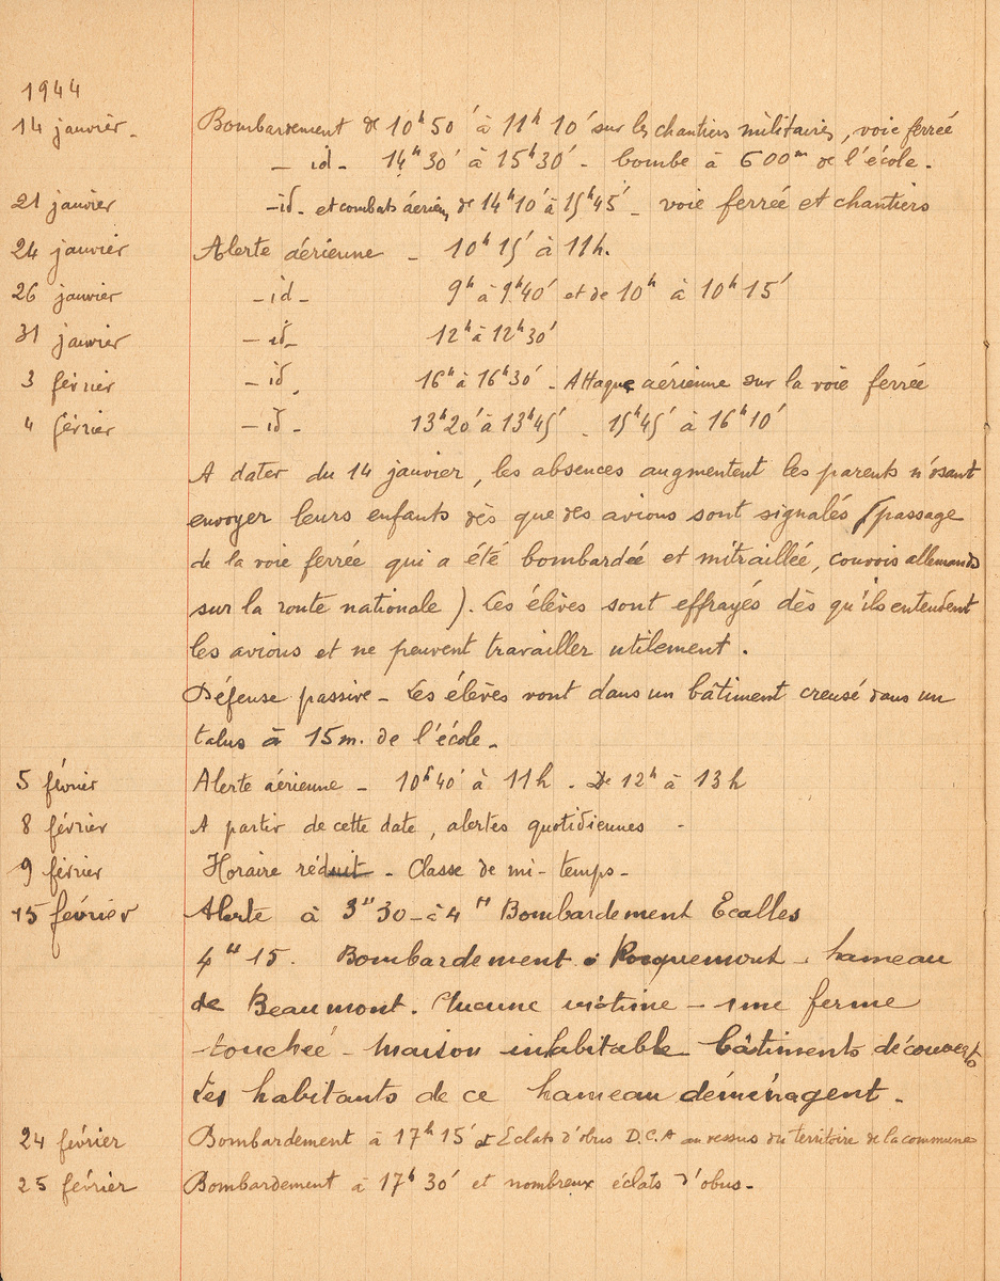 1944
14 janvier - Bombardement de 10h50' à 11h10' sur les chantiers militaires, voie ferrée
- id - 14h30' à 15h30' - bombe à 600m de l'école.
21 janvier - id. et combats aériens de 14h10' à 15h45' - voie ferrée et chantiers
24 janvier Alerte aérienne - 10h15' à 11h.
26 janvier - id - 9h à 9h40' et de 10h à 10h15'
31 janvier - id - 12h à 12h30'
3 février - id. 16h à 16h30' - Attaque aérienne sur la voie ferrée
4 février - id - 13h20' à 13h45' - 15h45' à 16h10'
A dater du 14 janvier, les absences augmentent les parents n'osant
envoyer leurs enfants dès que des avions sont signalés (passage
de la voie ferrée qui a été bombardée et mitraillée, convois allemands
sur la route nationale). Les élèves sont effrayés dès qu'ils entendent
les avions et ne peuvent travailler utilement.
Défense passive - Les élèves vont dans un bâtiment creusé dans un
talus à 15m. de l'école -
5 février Alerte aérienne - 10h40' à 11h. De 12h à 13h
8 février A partir de cette date, alertes quotidiennes -
9 février Horaire réduit - Classe de mi-temps -
15 février Alerte à 3H30 - à 4H Bombardement Ecalles
4H15. Bombardement à Rocquemont - hameau
de Beaumont. Aucune victime - une ferme
touchée - Maison inhabitable bâtiments découverts
Les habitants de ce hameau déménagent -
24 février Bombardement à 17h15' et Eclats d'obus D.C.A au dessus du territoire de la commune
25 février Bombardement à 17h30' et nombreux éclats d'obus -